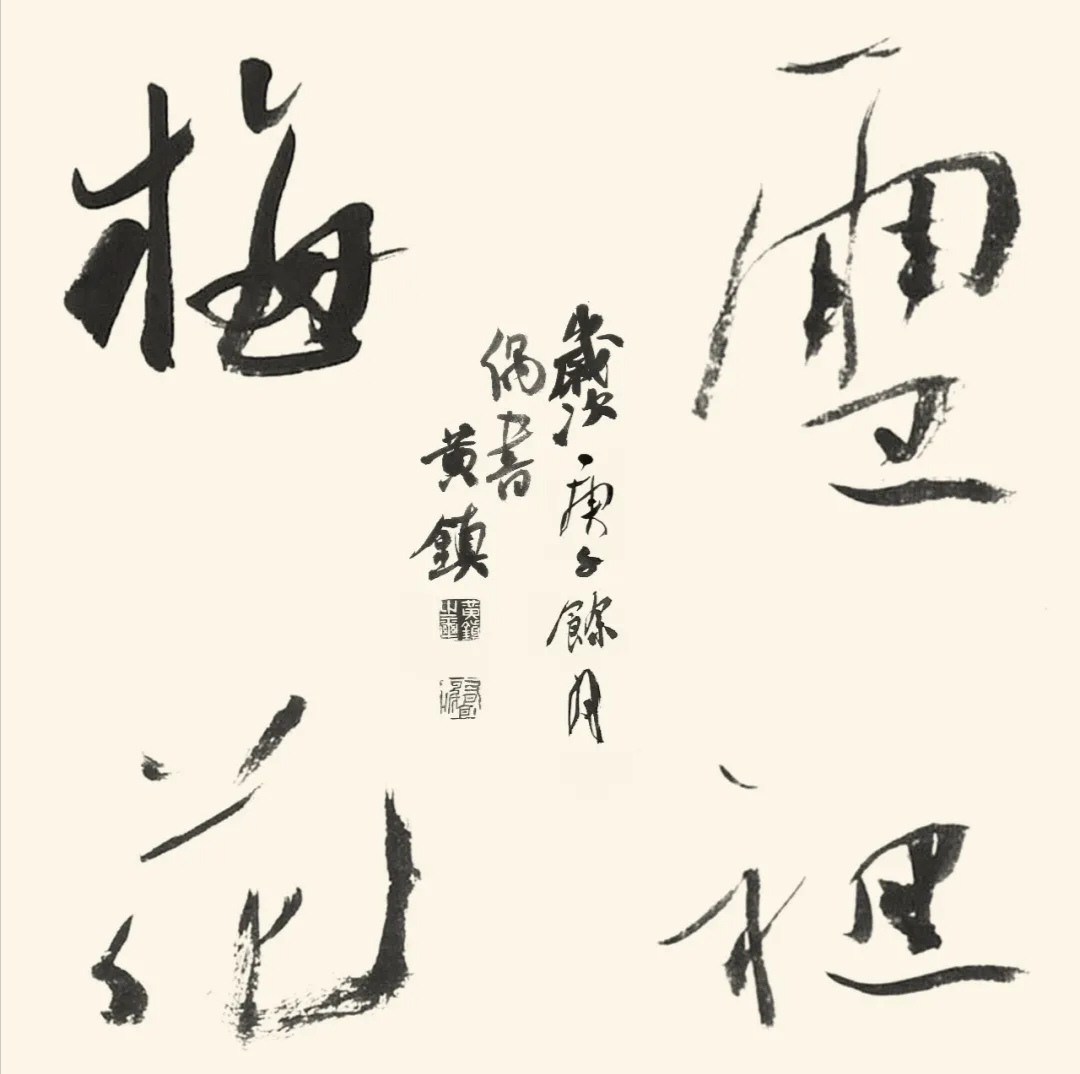 雪裡
梅花
歲次庚子餘月
偶書
黄鎮